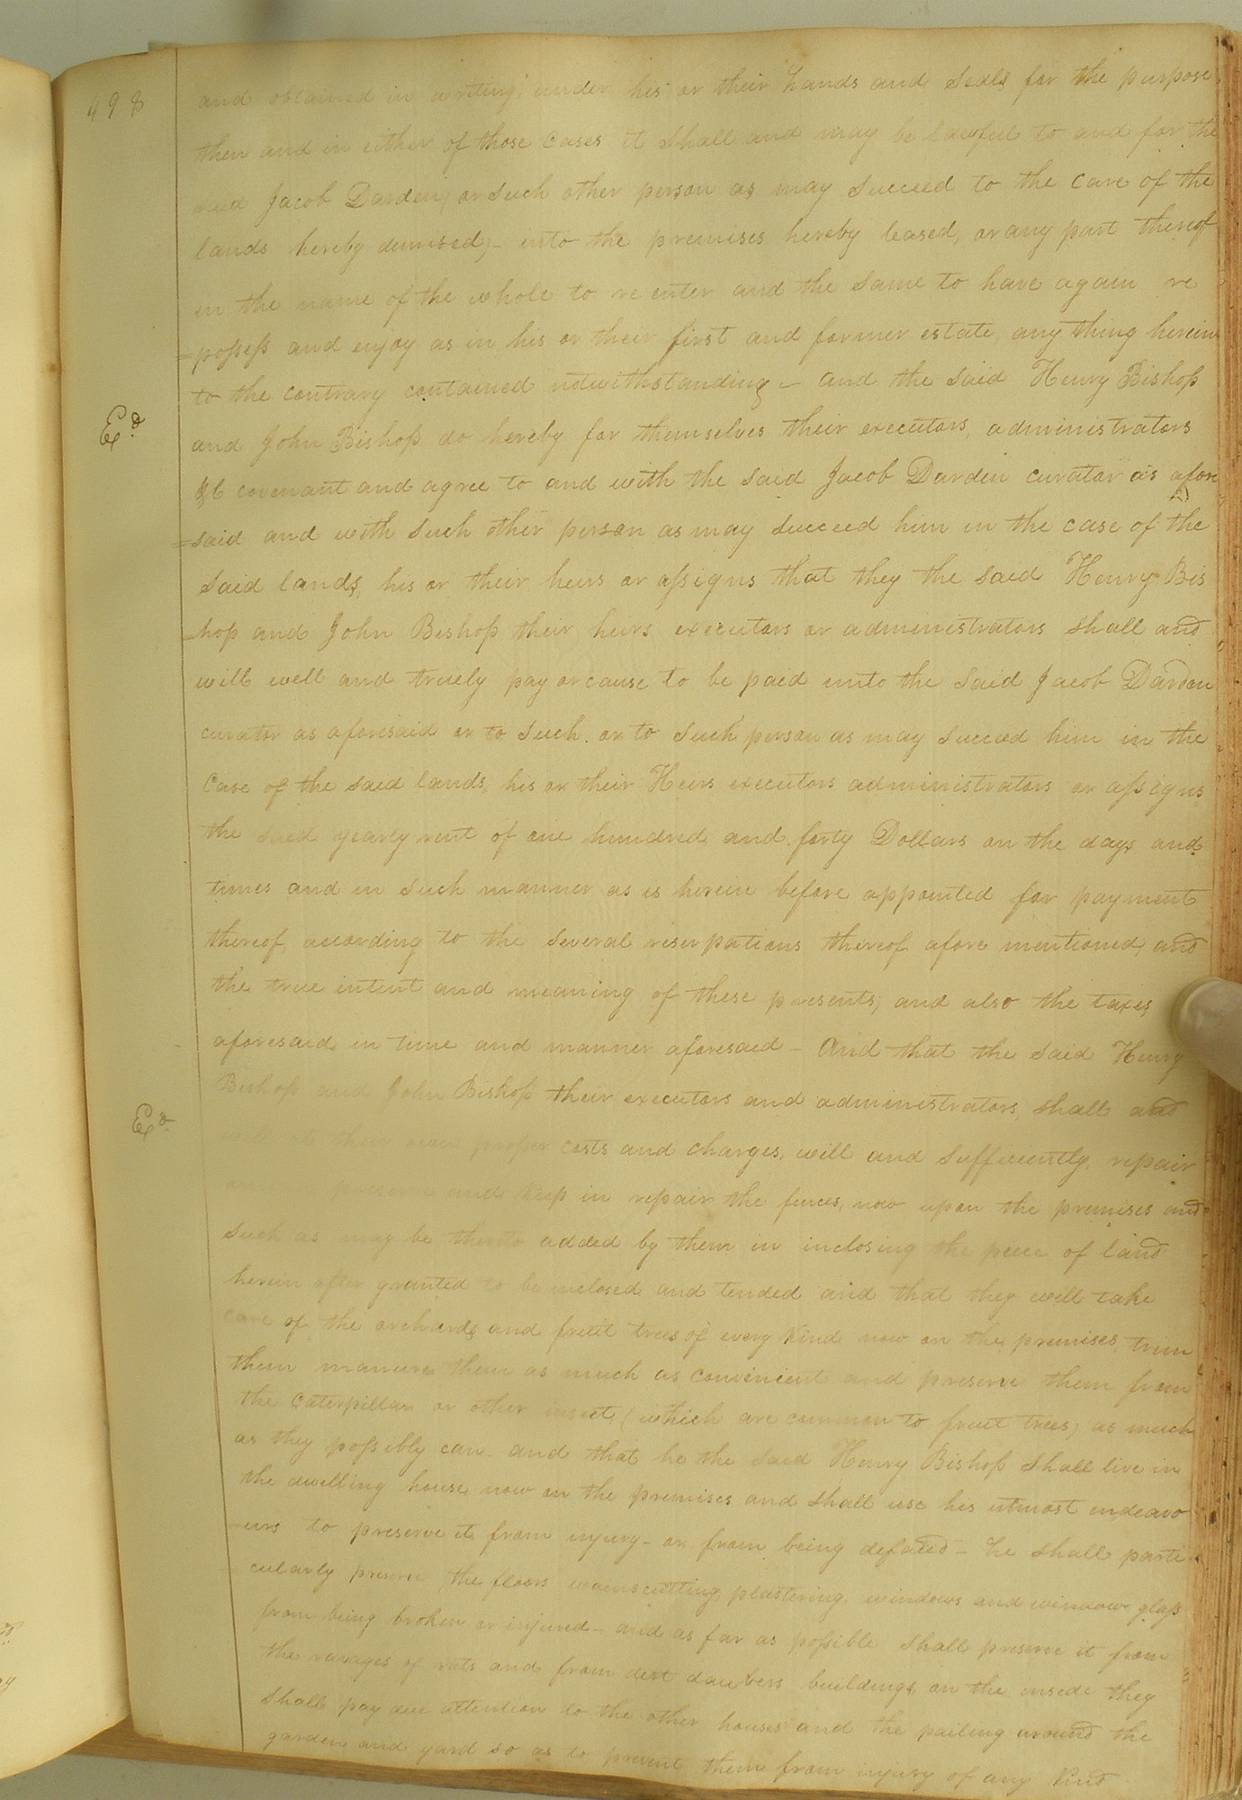 498
and obtained in writing, under his or their hands and Seals for the purpose
then and in either of those cases it shall and may be lawful to and for the
said Jacob Darden, or such other person as may succeed to the care of the
lands hereby demised, - into the premises hereby leased, or any part thereof
in the name of the whole to re enter and the same to have again re
=possess and enjoy as in his or their first and former estate, any thing herein
to the contrary contained notwithstanding - and the said Henry Bishop
and John Bishop do hereby for themselves their executors, administrators
&c covenant and agree to and with the said Jacob Darden curator as afore
=said and with such other person as may succeed him in the case of the
said lands, his or their heirs or assigns that they the said Henry Bis
=hop and John Bishop their heirs executors or administrators shall and
will well and truely pay or cause to be paid unto the said Jacob Darden
curator as aforesaid or to such or to such person as may succeed him in the
care of the said lands, his or their Heirs executors administrators or assigns
the said yearly rent of one hundred and forty Dollars on the days and
times and in such manner as is herein before appointed for payment
thereof according to the several reservations thereof afore mentioned, and
the true intent and meaning of these presents, and also the taxes
aforesaid in time and manner aforesaid - And that the said Henry
Bishop and John Bishop their executors and administrators, shall and
their own proper costs and charges, will and sufficiently, repair
preserve and keep in repair the fences, now upon the premises and
such as may be thereto added by them in inclosing the piece of land
herein after granted to be inclosed and tended and that they will take
care of the orchards and fruit trees of every kind now on the premises, trim
them manure them as much as convenient and preserve them from
the caterpillar or other insects (which are common to fruit trees) as much
as they possibly can. and that he the said Henry Bishop shall live in
the dwelling house now on the premises and shall use his utmost endeavo
=urs to preserve it from injury - or from being defaced - he shall parti
cularly preserve the floors wainscutting, plastering, windows and window glass
from being broken or injured - and as far as possible shall preserve it from
the ravages of rats and from dirt daubers buildings on the inside they
shall pay due attention to the other houses and the pailing around the
garden and yard so as to prevent them from injury of any kind